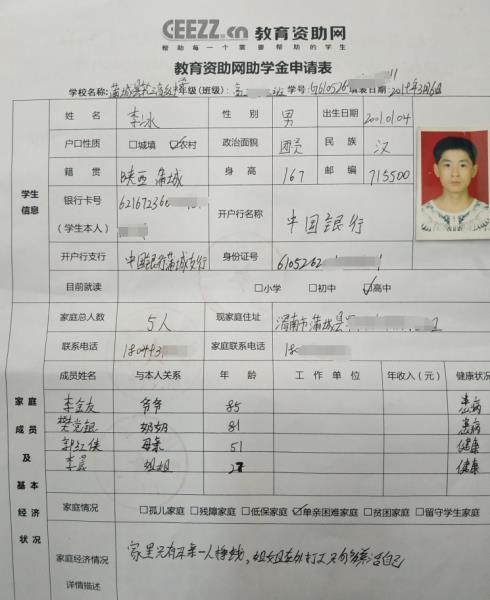 CEEZZ.cn 教育资助网
帮助每一个需要帮助的学生
教育资助网助学金申请表
学校名称: 蒲城县 年级(班级): 高 学号: 610526 填表日期: 2019年3月6日
姓名 李冰 性别 男 出生日期 2001.01.04
户口性质 □城填 ☑农村 政治面貌 团员 民族 汉
学生信息
籍贯 陕西 蒲城 身高 167 邮编 715500
银行卡号 (学生本人) 621672366 开户行名称 中国银行
开户行支行 中国银行蒲城支行 身份证号 6105262
目前就读 □小学 □初中 ☑高中
家庭总人数 5人 现家庭住址 渭南市蒲城县
联系电话 180493 家庭联系电话 180
成员姓名 与本人关系 年龄 工作单位 年收入(元) 健康状况
家庭成员及基本经济状况
李金友 爷爷 85 患病
樊党银 奶奶 81 患病
郭红侠 母亲 51 健康
李晨 姐姐 27 健康
家庭情况 □孤儿家庭 □残障家庭 □低保家庭 ☑单亲困难家庭 □贫困家庭 □留守学生家庭
家庭经济情况 家里只有母亲一人挣钱,姐姐在外打工只够养活自己
详情描述